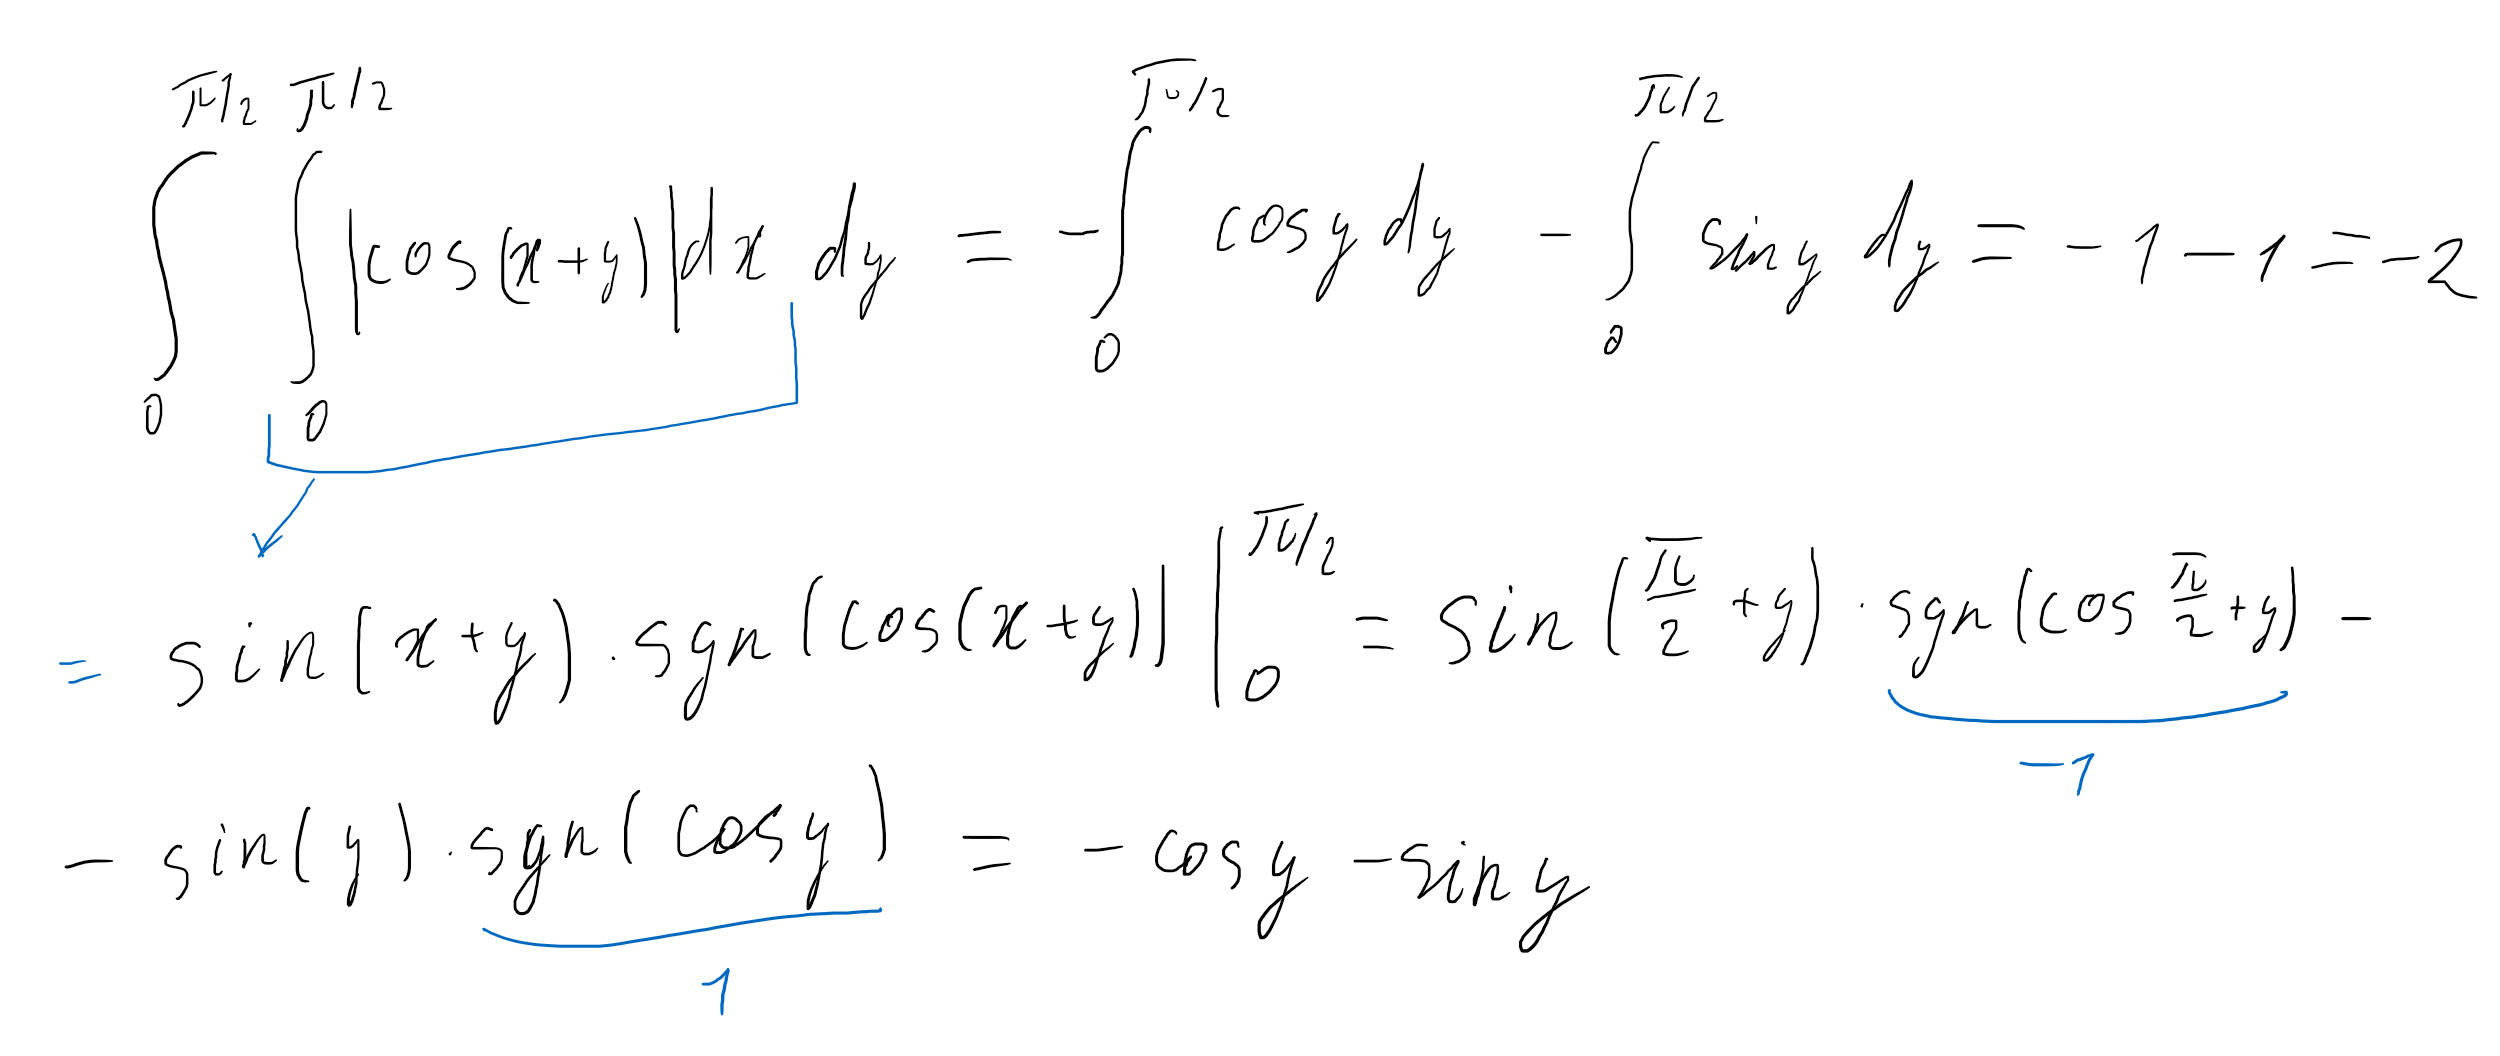 ∫₀^{π/2} ∫₀^{π/2} |cos(x+y)| dx dy = - ∫₀^{π/2} cosy dy - ∫₀^{π/2} siny dy = -1 - 1 = -2
= sin(x+y) · sgn(cos(x+y)) |₀^{π/2} = sin(π/2 + y) · sgn(cos π/2 + y) -
-1
- sin(y) · sgn(cosy) = - cosy - siny
1